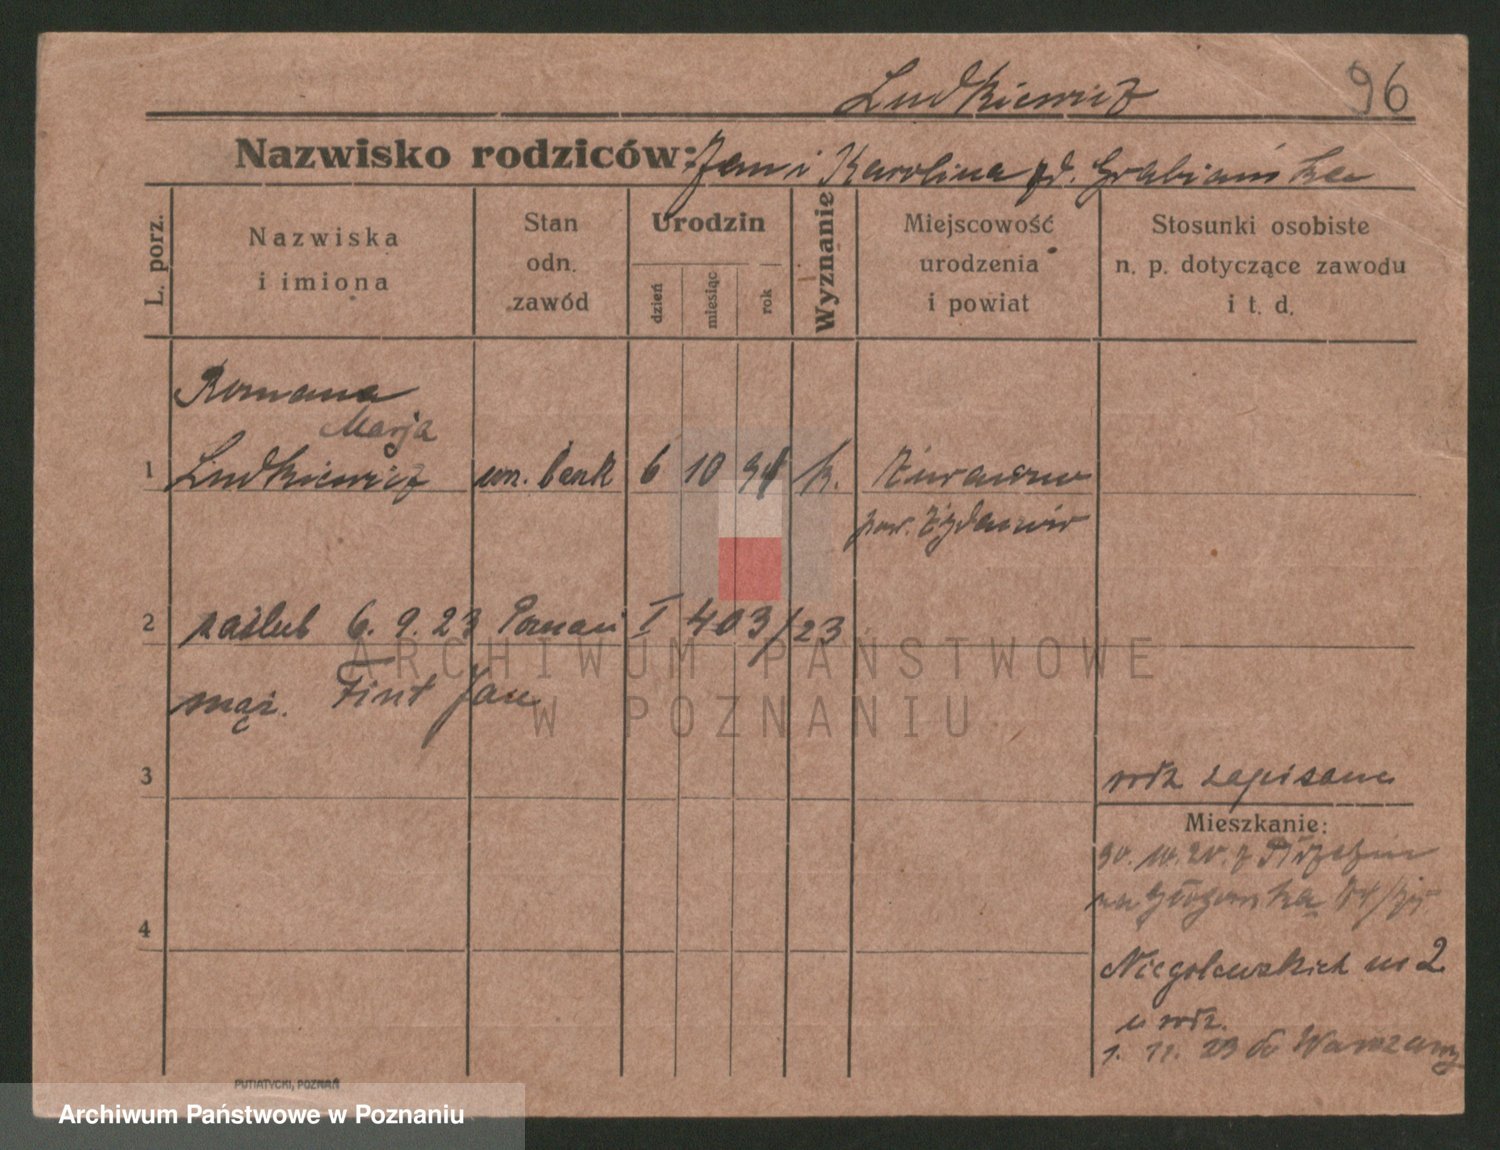 Ludkiewicz 96
Nazwisko rodziców: Jan i Karolina zd. Grabiańska
L. porz.
Nazwiska
i imiona
Stan
odn.
zawód
Urodzin
dzień
miesiąc
rok
Wyznanie
Miejscowość
urodzenia
i powiat
Stosunki osobiste
n. p. dotyczące zawodu
i t. d.
Romana
Marja
1 Ludkiewicz urz. bank 6 10 94 k.
pow.
2 zaślub 6. 9. 23 Poznań I 403/23
mąż. Fint Jan
3 rodz zapisana
Mieszkanie:
30. 10. 20. z
na Głogowska
4
Niegolewskich nr 2
u rodz.
1. 11. 23 do Warszawy
PUTIATYCKI, POZNAŃ
ARCHIWUM PAŃSTWOWE
W POZNANIU
Archiwum Państwowe w Poznaniu